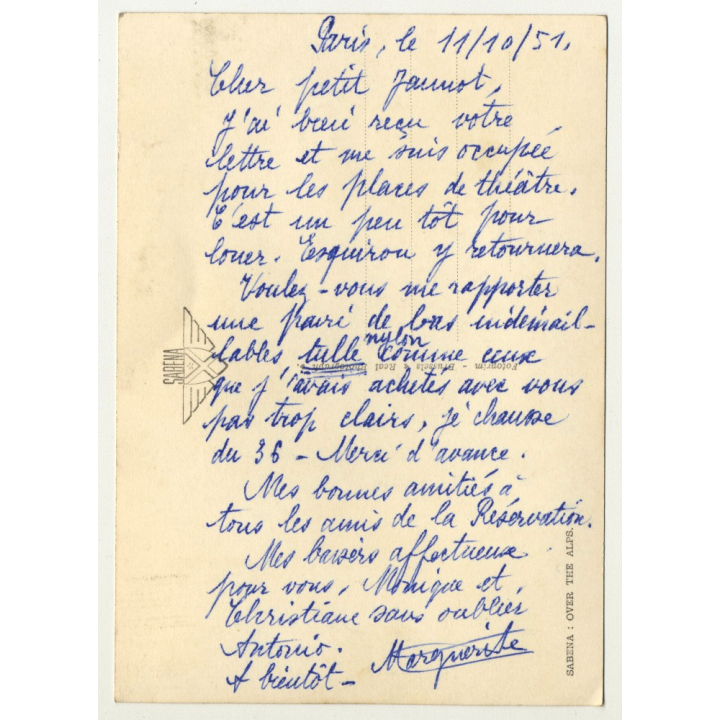 Paris, le 11/10/51.
Cher petit Jannot,
J'ai bien reçu votre
lettre et me suis occupée
pour les places de théâtre.
C'est un peu tôt pour
louer. Esquirou y retournera.
Voulez-vous me rapporter
une paire de bas indémail-
nylon
lables tulle comme ceux
que j'avais achetés avec vous
pas trop clairs, je chausse
du 36 - Merci d'avance.
Mes bonnes amitiés à
tous les amis de la Réservation.
Mes baisers affectueux
pour vous, Monique et
Christiane sans oublier
Antonio.
A bientôt - Marguerite
SABENA
Fotogrim - Brussels - Real Photograph
SABENA : OVER THE ALPS.